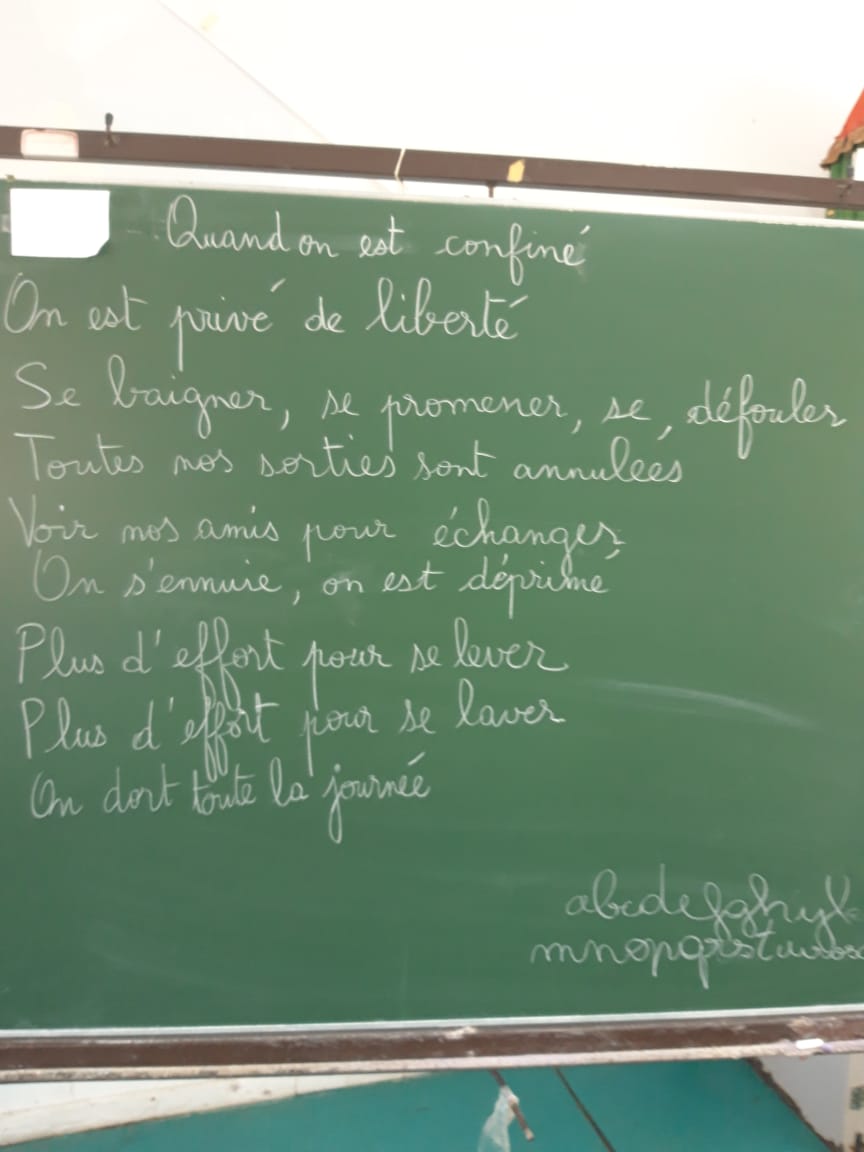 Quand on est confiné
On est privé de liberté
Se baigner, se promener, se défouler
Toutes nos sorties sont annulées
Voir nos amis pour échanger
On s'ennuie, on est déprimé
Plus d'effort pour se lever
Plus d'effort pour se laver
On dort toute la journée
abcdefghijk
mnopqrstuvwx